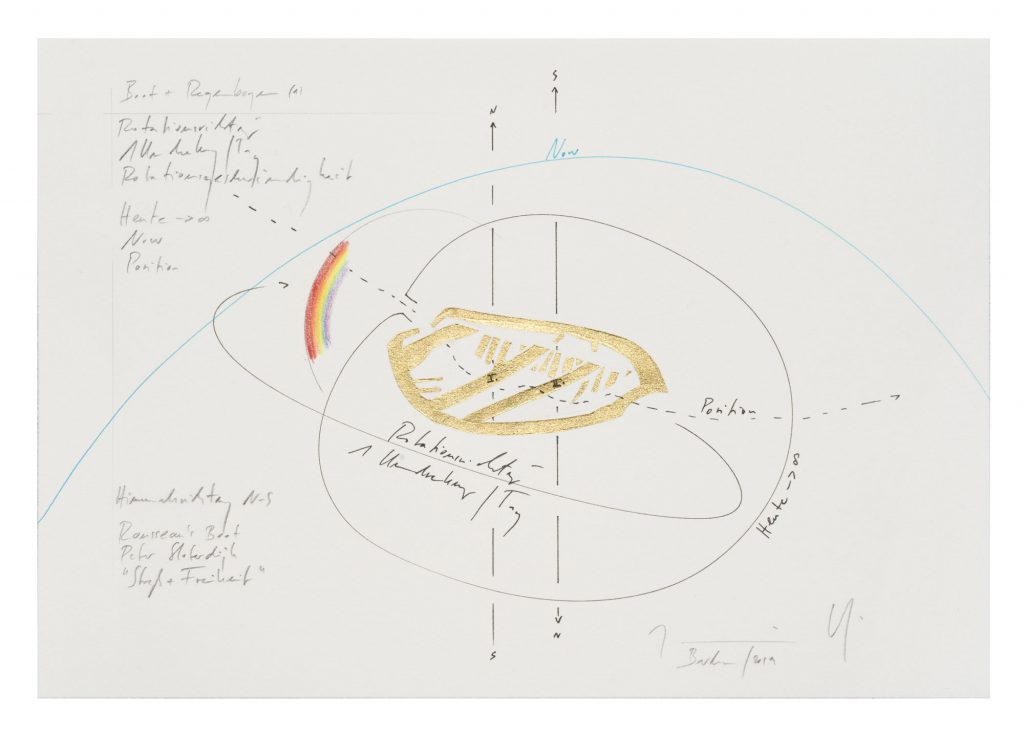 Boot + Regenbogen (a)
Rotationsrichtung
1 Umdrehung / Tag
Rotationsgeschwindigkeit
Heute -> ∞
Now
Position
S
N
Now
I.
II.
Position
Rotationsrichtung
1 Umdrehung / Tag
Heute -> ∞
Himmelsrichtung N-S
Rousseau's Boot
Peter Sloterdijk
"Streß + Freiheit"
N
S
/2019